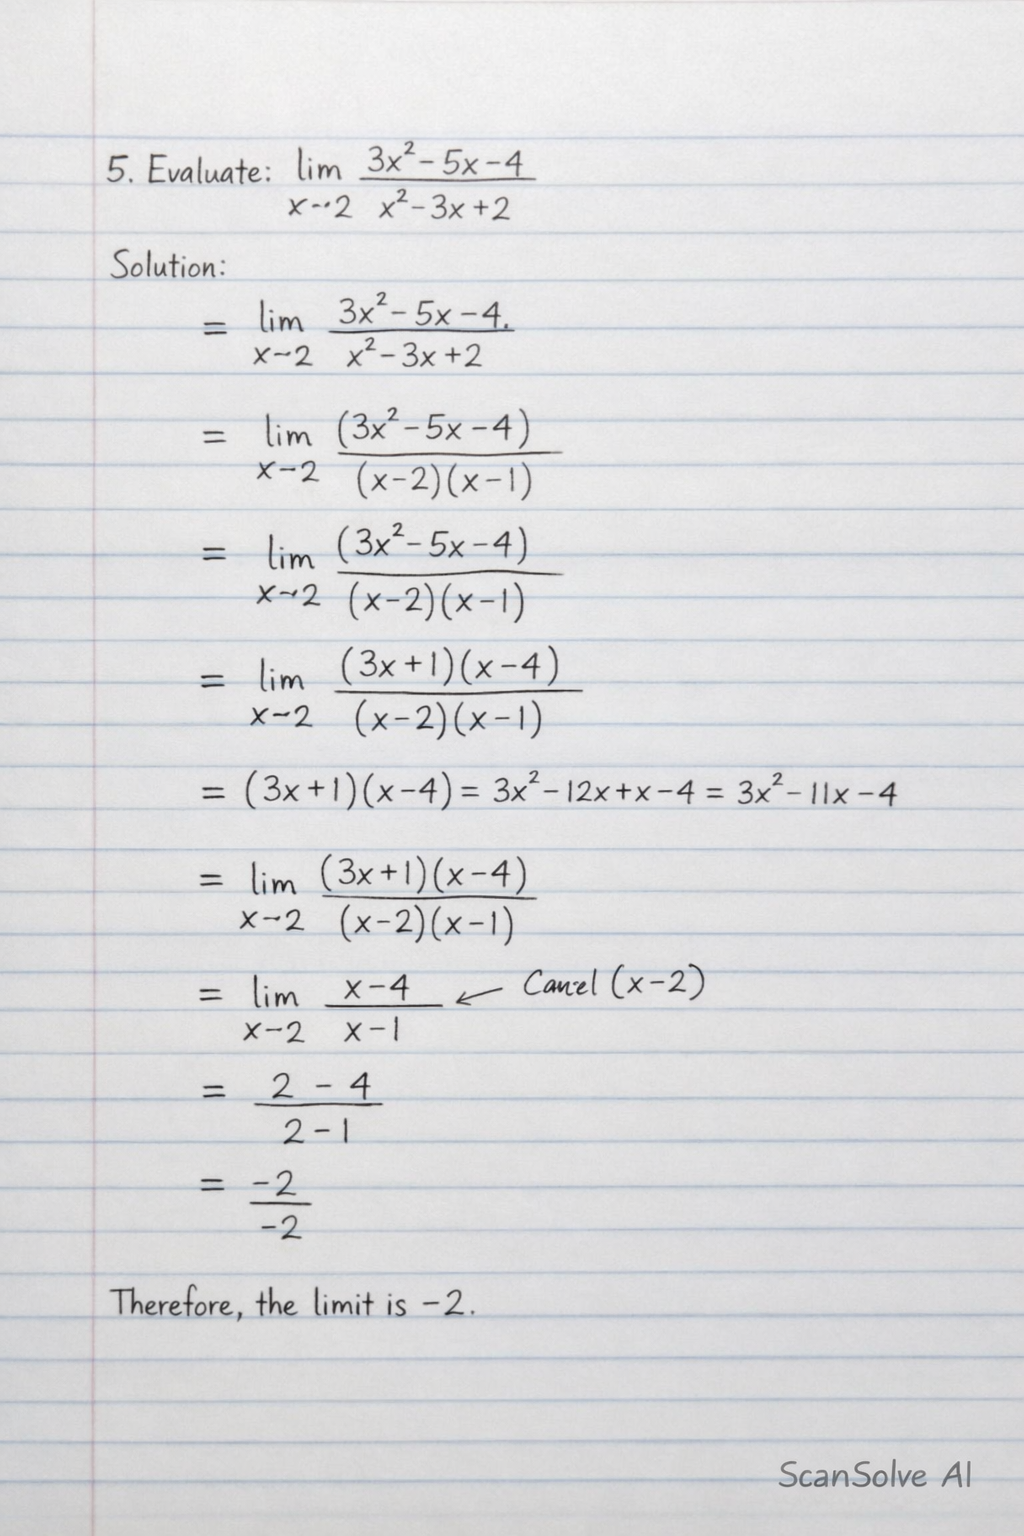 5. Evaluate: lim x→2 (3x² - 5x - 4)/(x² - 3x + 2)
Solution:
= lim x→2 (3x² - 5x - 4.)/(x² - 3x + 2)
= lim x→2 (3x² - 5x - 4)/((x-2)(x-1))
= lim x→2 (3x² - 5x - 4)/((x-2)(x-1))
= lim x→2 ((3x+1)(x-4))/((x-2)(x-1))
= (3x+1)(x-4) = 3x² - 12x + x - 4 = 3x² - 11x - 4
= lim x→2 ((3x+1)(x-4))/((x-2)(x-1))
= lim x→2 (x-4)/(x-1) ← Cancel (x-2)
= (2 - 4)/(2 - 1)
= -2/-2
Therefore, the limit is -2.
ScanSolve AI